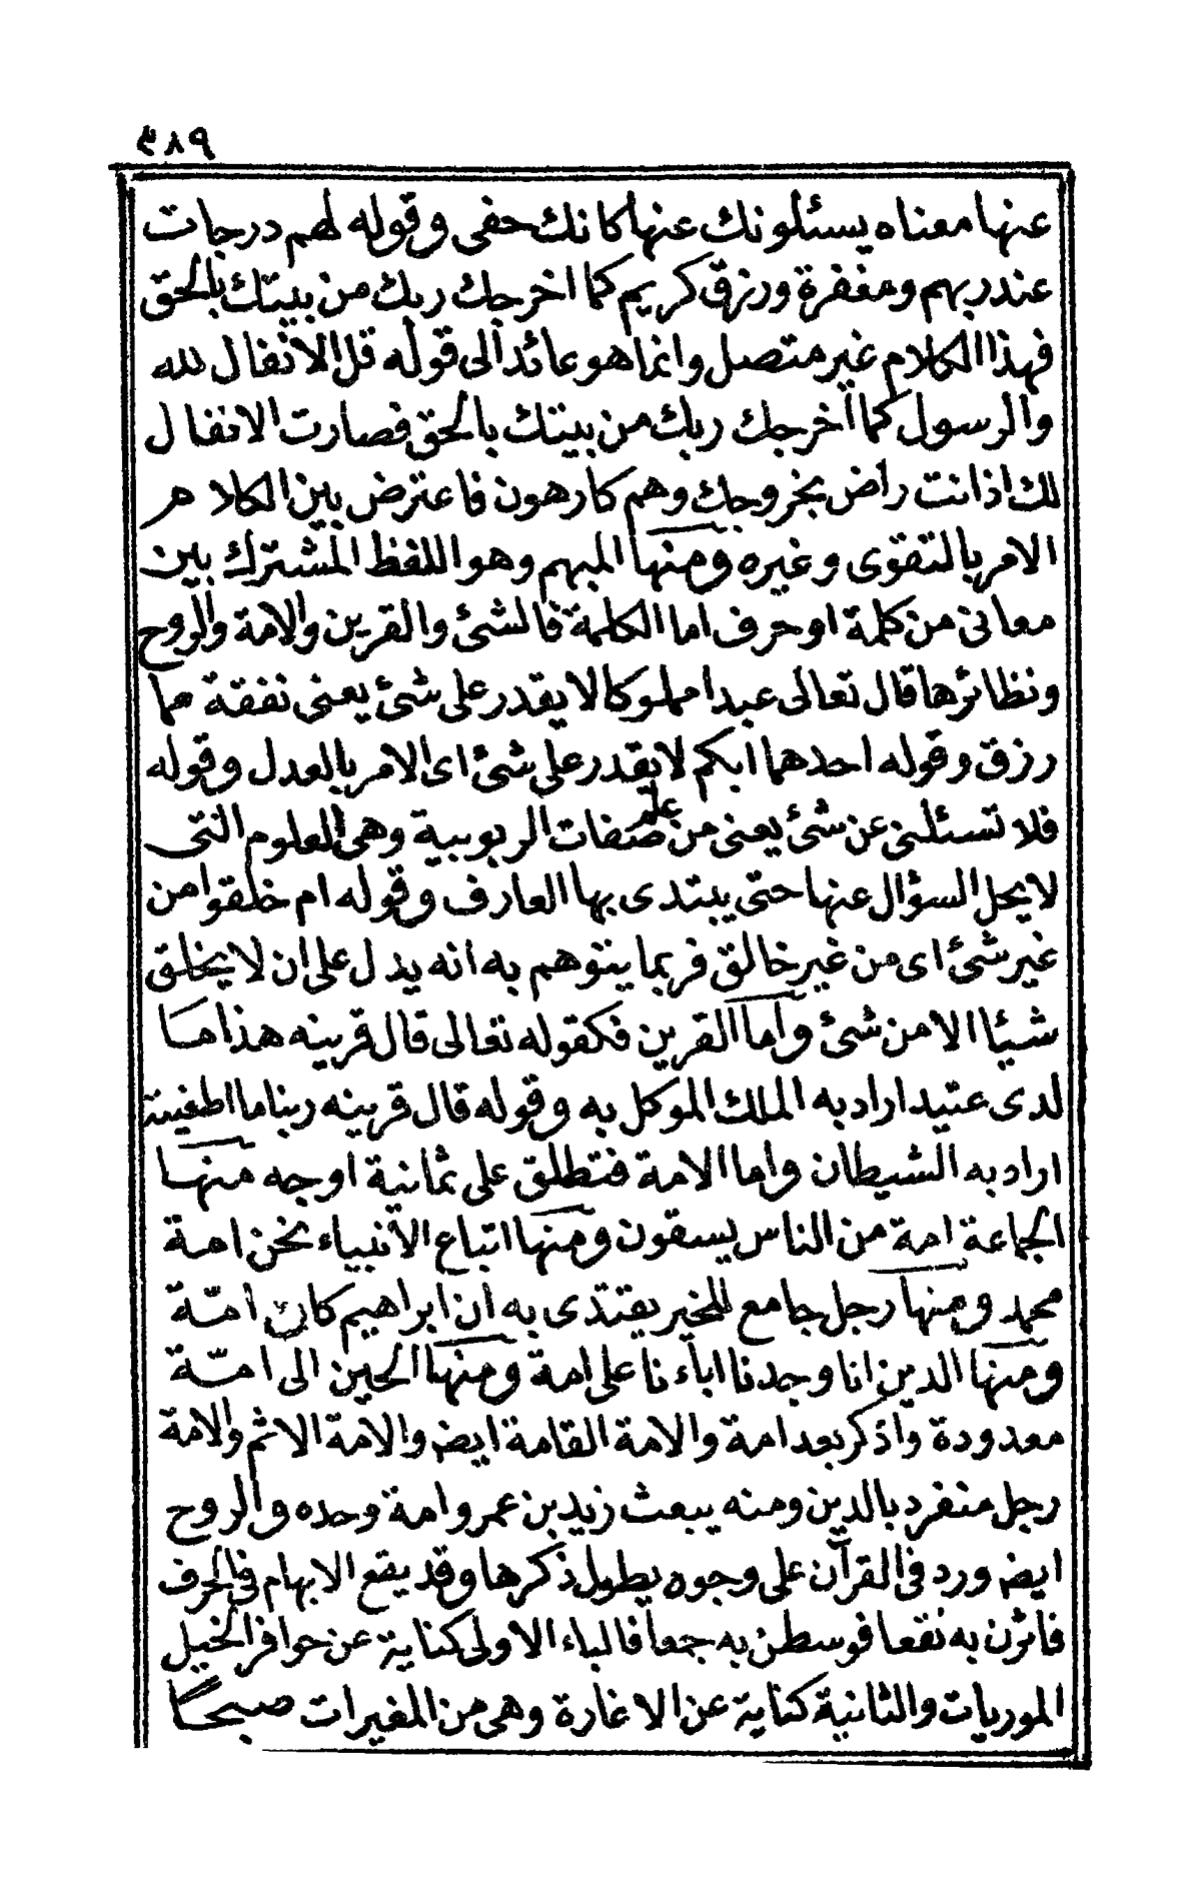 ٣٨٩
عنها معناه يسئلونك عنها كانك حفى وقوله لهم درجات
عند ربهم ومغفرة ورزق كريم كما اخرجك ربك من بيتك بالحق
فهذا الكلام غير متصل وانما هو عائد الى قوله قل الانفال لله
والرسول كما اخرجك ربك من بيتك بالحق فصارت الانفال
لك اذ انت راض بخروجك وهم كارهون فاعترض بين الكلام
الامر بالتقوى وغيره ومنها المبهم وهو اللفظ المشترك بين
معانى من كلمة او حرف اما الكلمة فالشئ والقرين والامة والروح
ونظائرها قال تعالى عبدا مملوكا لا يقدر على شئ يعنى نفقة مما
رزق وقوله احدهما ابكم لا يقدر على شئ اى الامر بالعدل وقوله
فلا تسئلنى عن شئ يعنى من علم صفات الربوبية وهى العلوم التى
لا يحل السؤال عنها حتى يبتدى بها العارف وقوله ام خلقوا من
غير شئ اى من غير خالق فربما يتوهم به انه يدل على ان لا يخلق
شيئا الا من شئ واما القرين فكقوله تعالى قال قرينه هذا ما
لدى عتيد اراد به الملك الموكل به وقوله قال قرينه ربنا ما اطغيته
اراد به الشيطان واما الامة فتطلق على ثمانية اوجه منها
الجماعة امة من الناس يسقون ومنها اتباع الانبياء نحن امة
محمد ومنها رجل جامع للخير يقتدى به ان ابراهيم كان امّة
ومنها الدين انا وجدنا اباءنا على امة ومنها الحين الى امّة
معدودة واذكر بعد امة والامة القامة ايض والامة الاثم والامة
رجل منفرد بالدين ومنه يبعث زيد بن عمرو امة وحده والروح
ايض ورد فى القرآن على وجوه يطول ذكرها وقد يقع الابهام فى الحرف
فاثرن به نقعا فوسطن به جمعا فالباء الاولى كناية عن حوافر الخيل
الموريات والثانية كناية عن الاغارة وهى من المغيرات صبحًا